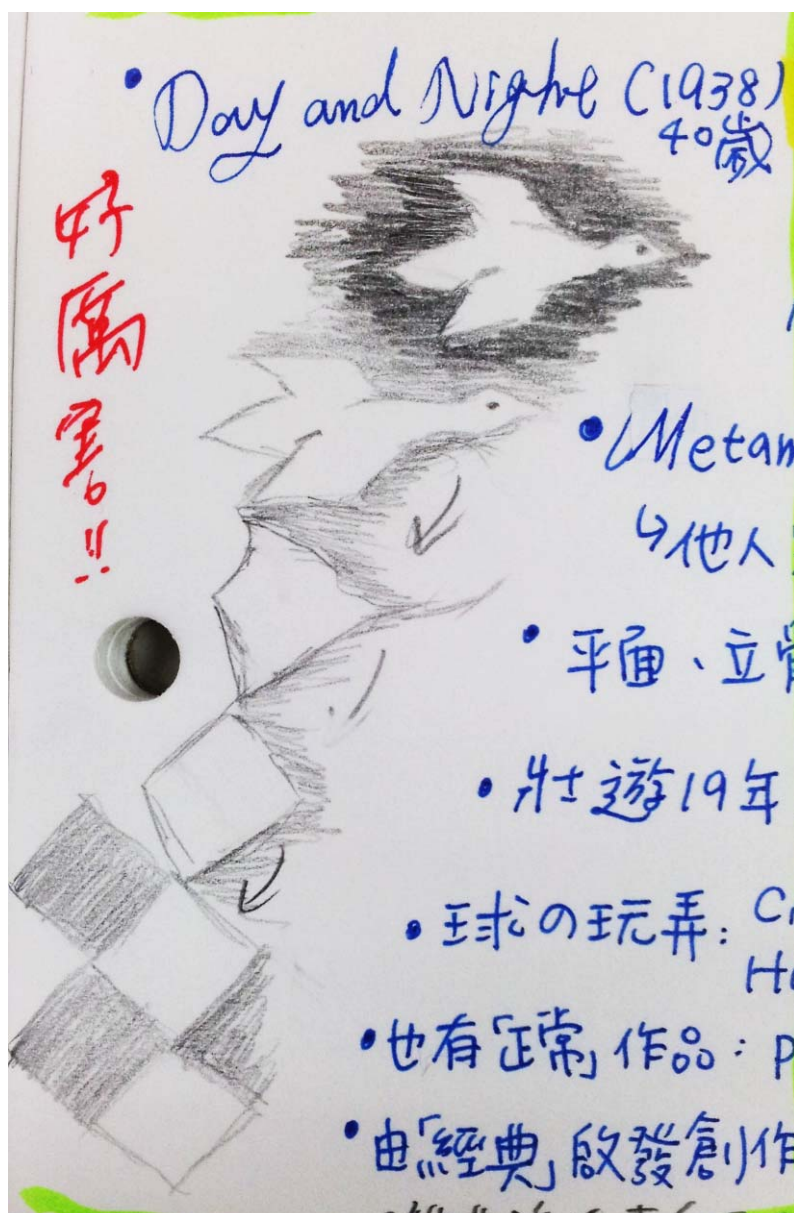 • Day and Night (1938)
40歲
好厲害!!
• Metam
↳他人
• 平面、立
• 壯遊19年
• 球の玩弄:
• 也有「正常」作品:
• 由「經典」啟發創作